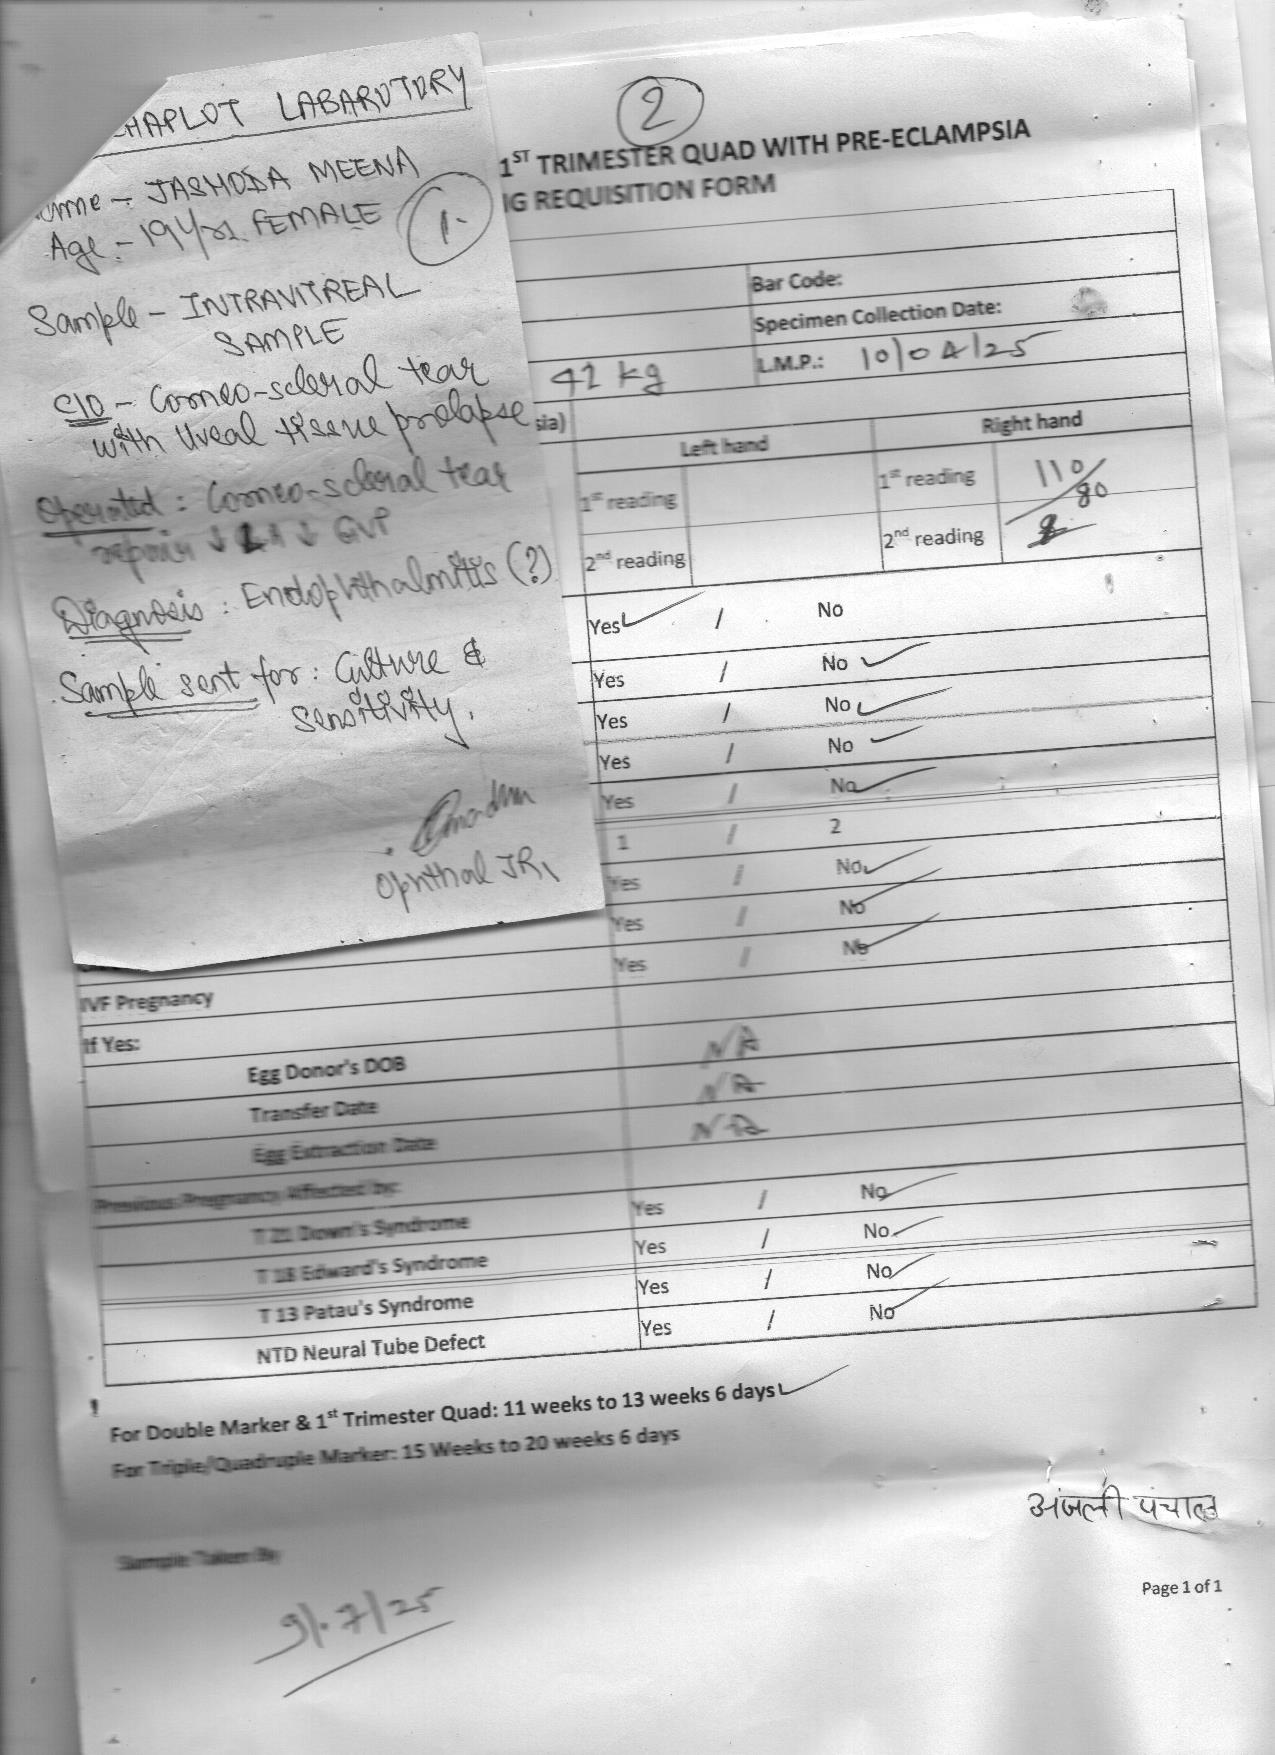 HAPLOT LABAROTORY
Name - JASHODA MEENA
Age :- 19 Yrs. FEMALE
1.
Sample - INTRAVITREAL
SAMPLE
C/O - Corneo-scleral tear
with Uveal tissue prolapse
Operated : Corneo-scleral tear
repair ↓ LA ↓ GVP
Diagnosis : Endophthalmitis (?)
Sample sent for : Culture &
Sensitivity.
Ophthal JR1
2
1ST TRIMESTER QUAD WITH PRE-ECLAMPSIA
G REQUISITION FORM
Bar Code:
Specimen Collection Date:
42 kg L.M.P.: 10/04/25
sia) Left hand Right hand
1st reading 1st reading 110/80
2nd reading 2nd reading
Yes / No
Yes / No
Yes / No
Yes / No
Yes / No
1 / 2
Yes / No
Yes / No
Yes / No
IVF Pregnancy
If Yes:
Egg Donor's DOB NA
Transfer Date NA
Egg Extraction Date NA
Previous Pregnancy Affected by:
T 21 Down's Syndrome Yes / No
T 18 Edward's Syndrome Yes / No
T 13 Patau's Syndrome Yes / No
NTD Neural Tube Defect Yes / No
For Double Marker & 1st Trimester Quad: 11 weeks to 13 weeks 6 days
For Triple/Quadruple Marker: 15 Weeks to 20 weeks 6 days
अंजली पंचाल
Sample Taken By
Page 1 of 1
9/.7/25